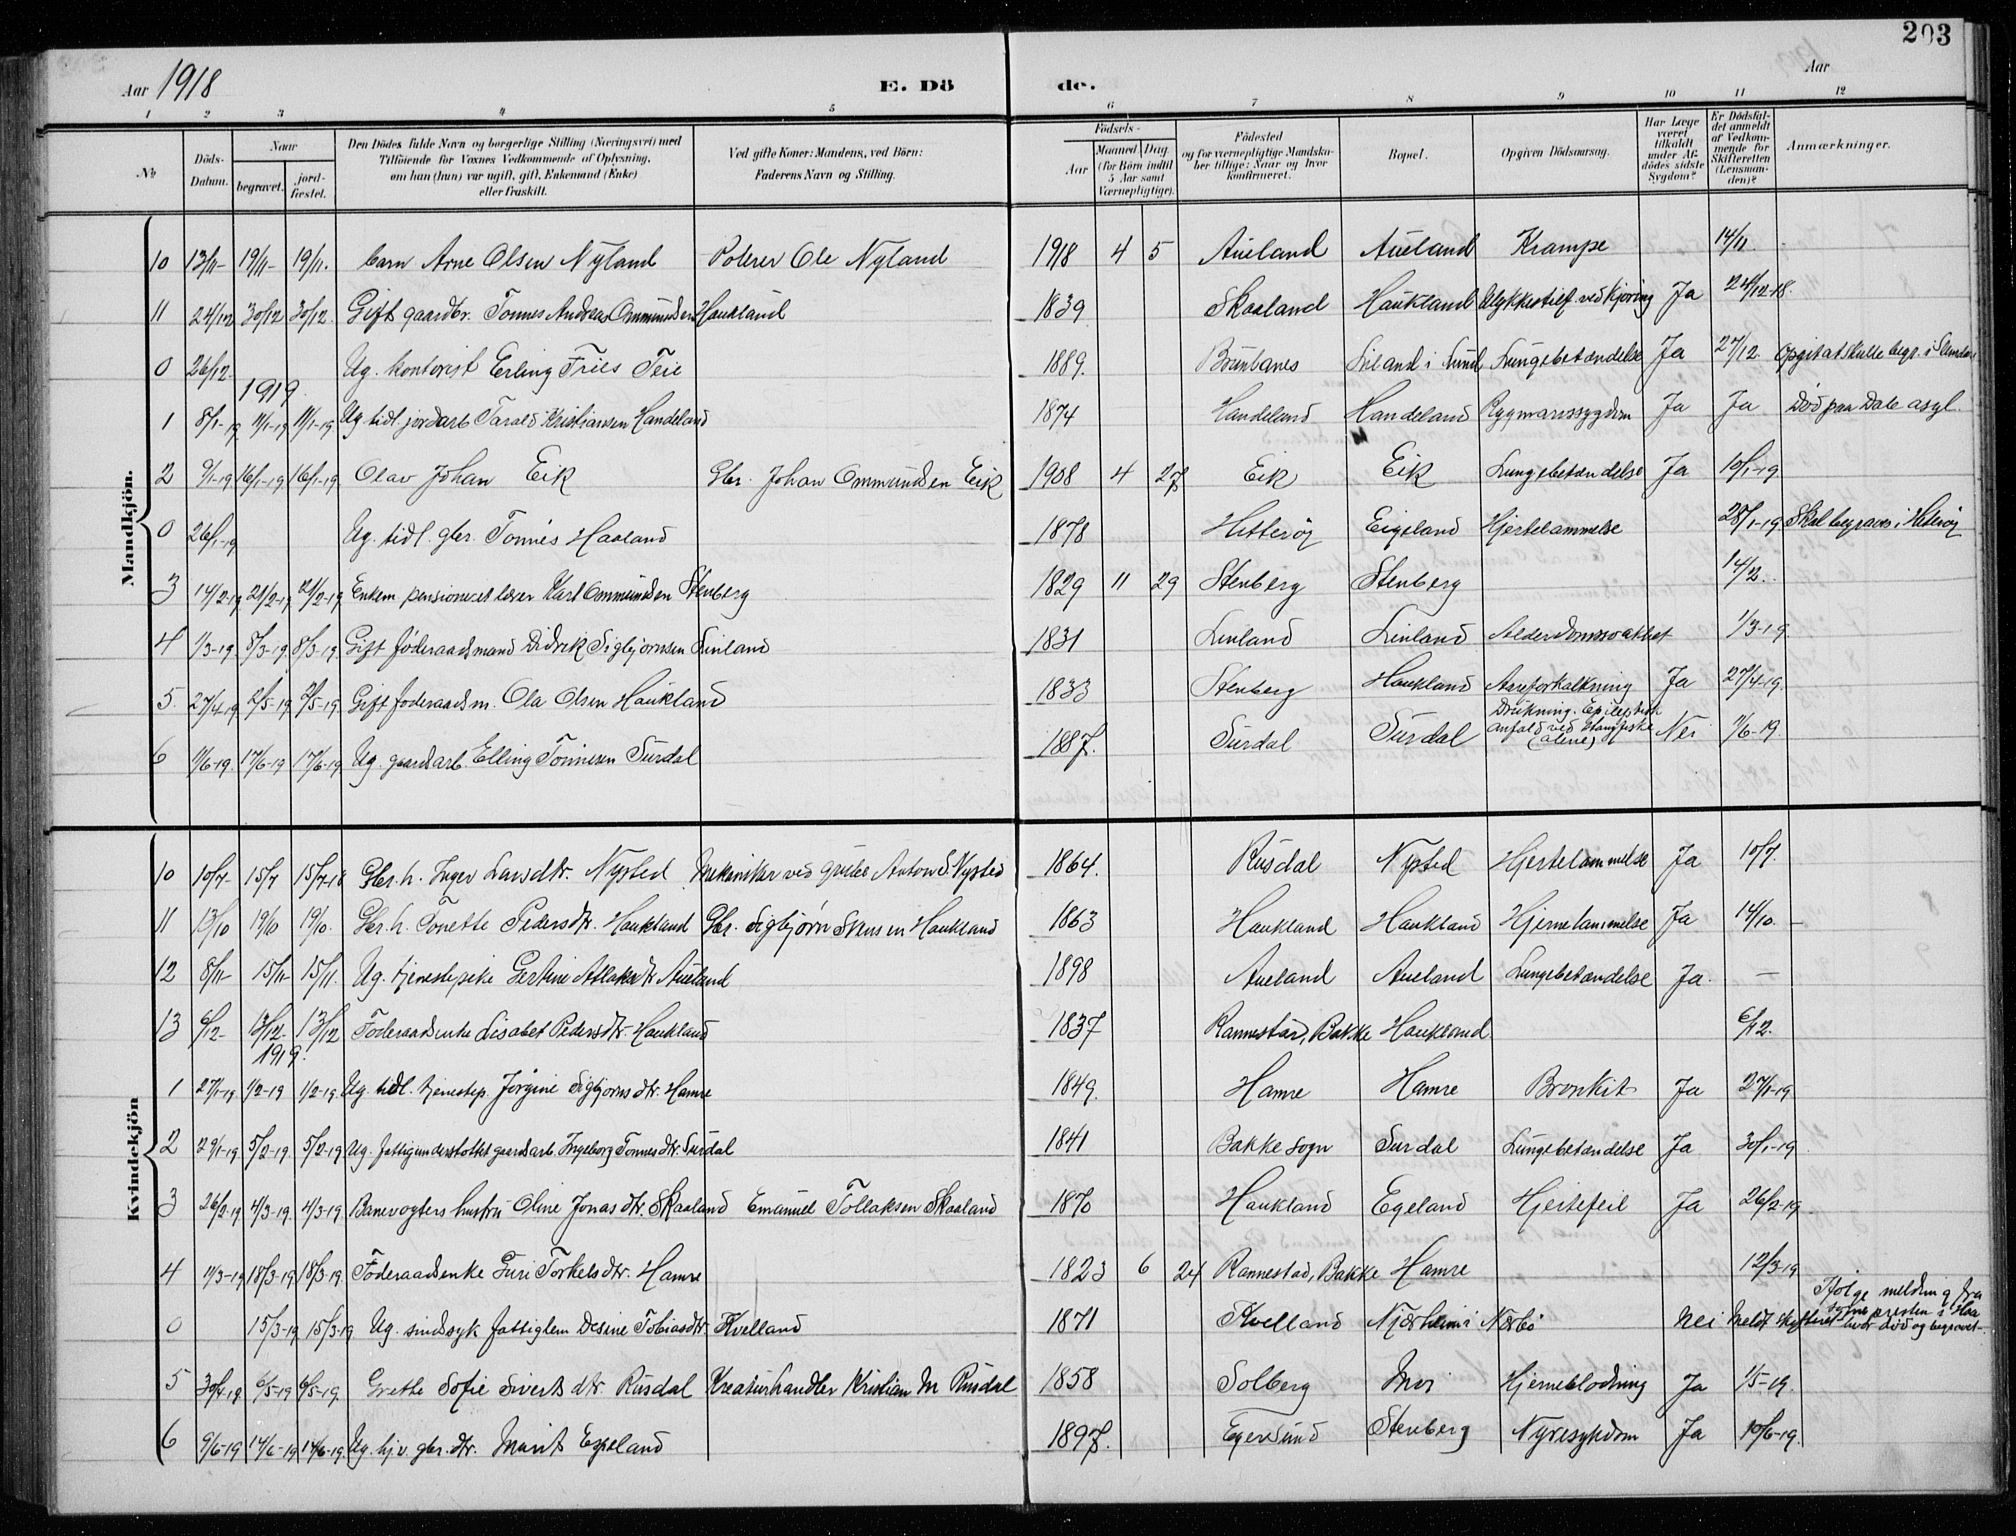 203
Aar 1918 E. Dö de. Aar
1 2 3 4 5 6 7 8 9 10 11 12
No
Döds-Datum.
Naar
begravet.
jord-fæstet.
Den Dödes fulde Navn og borgerlige Stilling (Næringsvei) med Tilföiende for Voxnes Vedkommende af Oplysning, om han (hun) var ugift, gift, Enkemand (Enke) eller fraskilt.
Ved gifte Koner: Mandens, ved Börn: Faderens Navn og Stilling.
Födsels-
Aar
Maaned Dag. (for Börn indtil 5 Aar samt Værnepligtige).
Födested og for værnepligtige Mandskaber tillige: Naar og hvor konfirmeret.
Bopæl.
Opgiven Dödsaarsag.
Har Læge været tilkaldt under Afdödes sidste Sygdom?
Er Dödsfaldet anmeldt af Vedkommende for Skifteretten (Lensmanden)?
Anmærkninger.
Mandkjön.
10 13/11- 19/11- 19/11. barn Arne Olsen Nyland Polerer Ole Nyland 1918 4 5 Aueland Aueland Krampe 14/11
11 24/12 30/12 30/12. Gift gaardbr. Tønnes Andreas Ommundsen Haukland 1839 Skaaland Haukland Ulykkestilf. ved kjøring Ja 24/12 18.
0 26/12. Ug. kontorist Erling Friis Teie 1889. Brunbanes Eiland i Lund Lungebetændelse Ja 27/12. Opgit at skulle begr. i
1919
1 8/1-19 11/1-19 11/1-19 Ug. tidl. jordarb Tarald Kristiansen Handeland 1874 Handeland Handeland Rygmarvssygdom Ja Ja Død paa Dale asyl.
2 9/1-19 16/1-19 16/1-19 Olav Johan Eik Gbr. Johan Ommundsen Eik 1908 4 27 Eik Eik Lungebetændelse Ja 10/1-19
0 26/1-19 Ug. tidl. gbr. Tønnes Haaland 1878 Hitterøy Eigeland Hjertelammelse 28/1-19 Skal begraves i Hiterøy
3 14/2-19 21/2-19 21/2-19 Enkem pensioneret lærer Karl Ommundsen Stenberg 1829 11 29 Stenberg Stenberg 14/2.
4 1/3-19 8/3-19 8/3-19. Gift føderaadsmand Didrik Sigbjørnsen Linland 1831 Linland Linland Alderdomssvakhet 1/3-19.
5 27/4-19 2/5-19 2/5-19. Gift føderaadsm. Ola Olsen Haukland 1833 Stenberg Haukland Aareforkalkning Ja 27/4-19.
6 11/6-19. 17/6-19 17/6-19 Ug. gaardsarb. Elling Tønnesen Surdal 1887. Surdal Surdal Drukning. Epileptisk anfald ved stangfiske (alene) Nei 11/6-19.
Kvindekjön
10 10/7- 15/7 15/7-18 Gbr. h. Inger Larsdtr. Nysted Mekaniker ved grube Anton S. Nysted 1864. Rusdal Nysted Hjertelammelse Ja 10/7.
11 13/10 19/10 19/10. Gbr. h. Tonette Pedersdtr. Haukland Gbr. Sigbjørn Hansen Haukland 1863 Haukland Haukland Hjernelammelse Ja 14/10. -
12 8/11- 15/11- 15/11. Ug. tjenestepike Gertine Atlaksdtr Aueland 1898 Aueland Aueland Lungebetændelse Ja. -
13 6/12- 13/12- 13/12 Føderaadsenke Lisabet Pedersdtr. Haukland 1837 Rannestad, Bakke Haukland. 6/12.
1919.
1 27/1-19. 1/2-19 1/2-19. Ug. tidl. tjenestep. Jørgine Sigbjørnsdtr. Hamre 1849. Hamre Hamre Bronkit Ja 27/1-19
2 29/1-19 5/2-19. 5/2-19. Ug. fattigunderstøttet gaardsarb. Ingeborg Tønnesdtr. Surdal 1841 Bakke sogn Surdal Lungebetændelse Ja 30/1-19
3 26/2-19 4/3-19. 4/3-19. Banevogters hustru Oline Jonasdtr. Skaaland Emanuel Tollaksen Skaaland 1870 Haukland Egeland Hjertefeil Ja 26/2-19
4 11/3-19 18/3-19 18/3-19. Føderaadsenke Guri Torkelsdtr. Hamre 1823 6 24 Rannestad, Bakke Hamre 12/3-19
0 15/3-19 15/3-19 Ug. sindssyk fattiglem Desine Tobiasdtr. Kvelland 1871 Kvelland Njærheim i Nærbø Nei Meldt skifteret Ifølge melding fra sognepresten i Haa hvor død og begravet.
5 30/4-19. 6/5-19 6/5-19. Grethe Sofie Sivertsdtr. Rusdal Kreaturhandler Kristian M Rusdal 1858 Solberg Moi Hjerneblødning Ja 1/5-19.
6 9/6-19 14/6-19 14/6-19. Ug. hjv. gbr. dtr. Marit Egeland 1897. Egersund Stenberg Nyresykdom Ja 10/6-19.